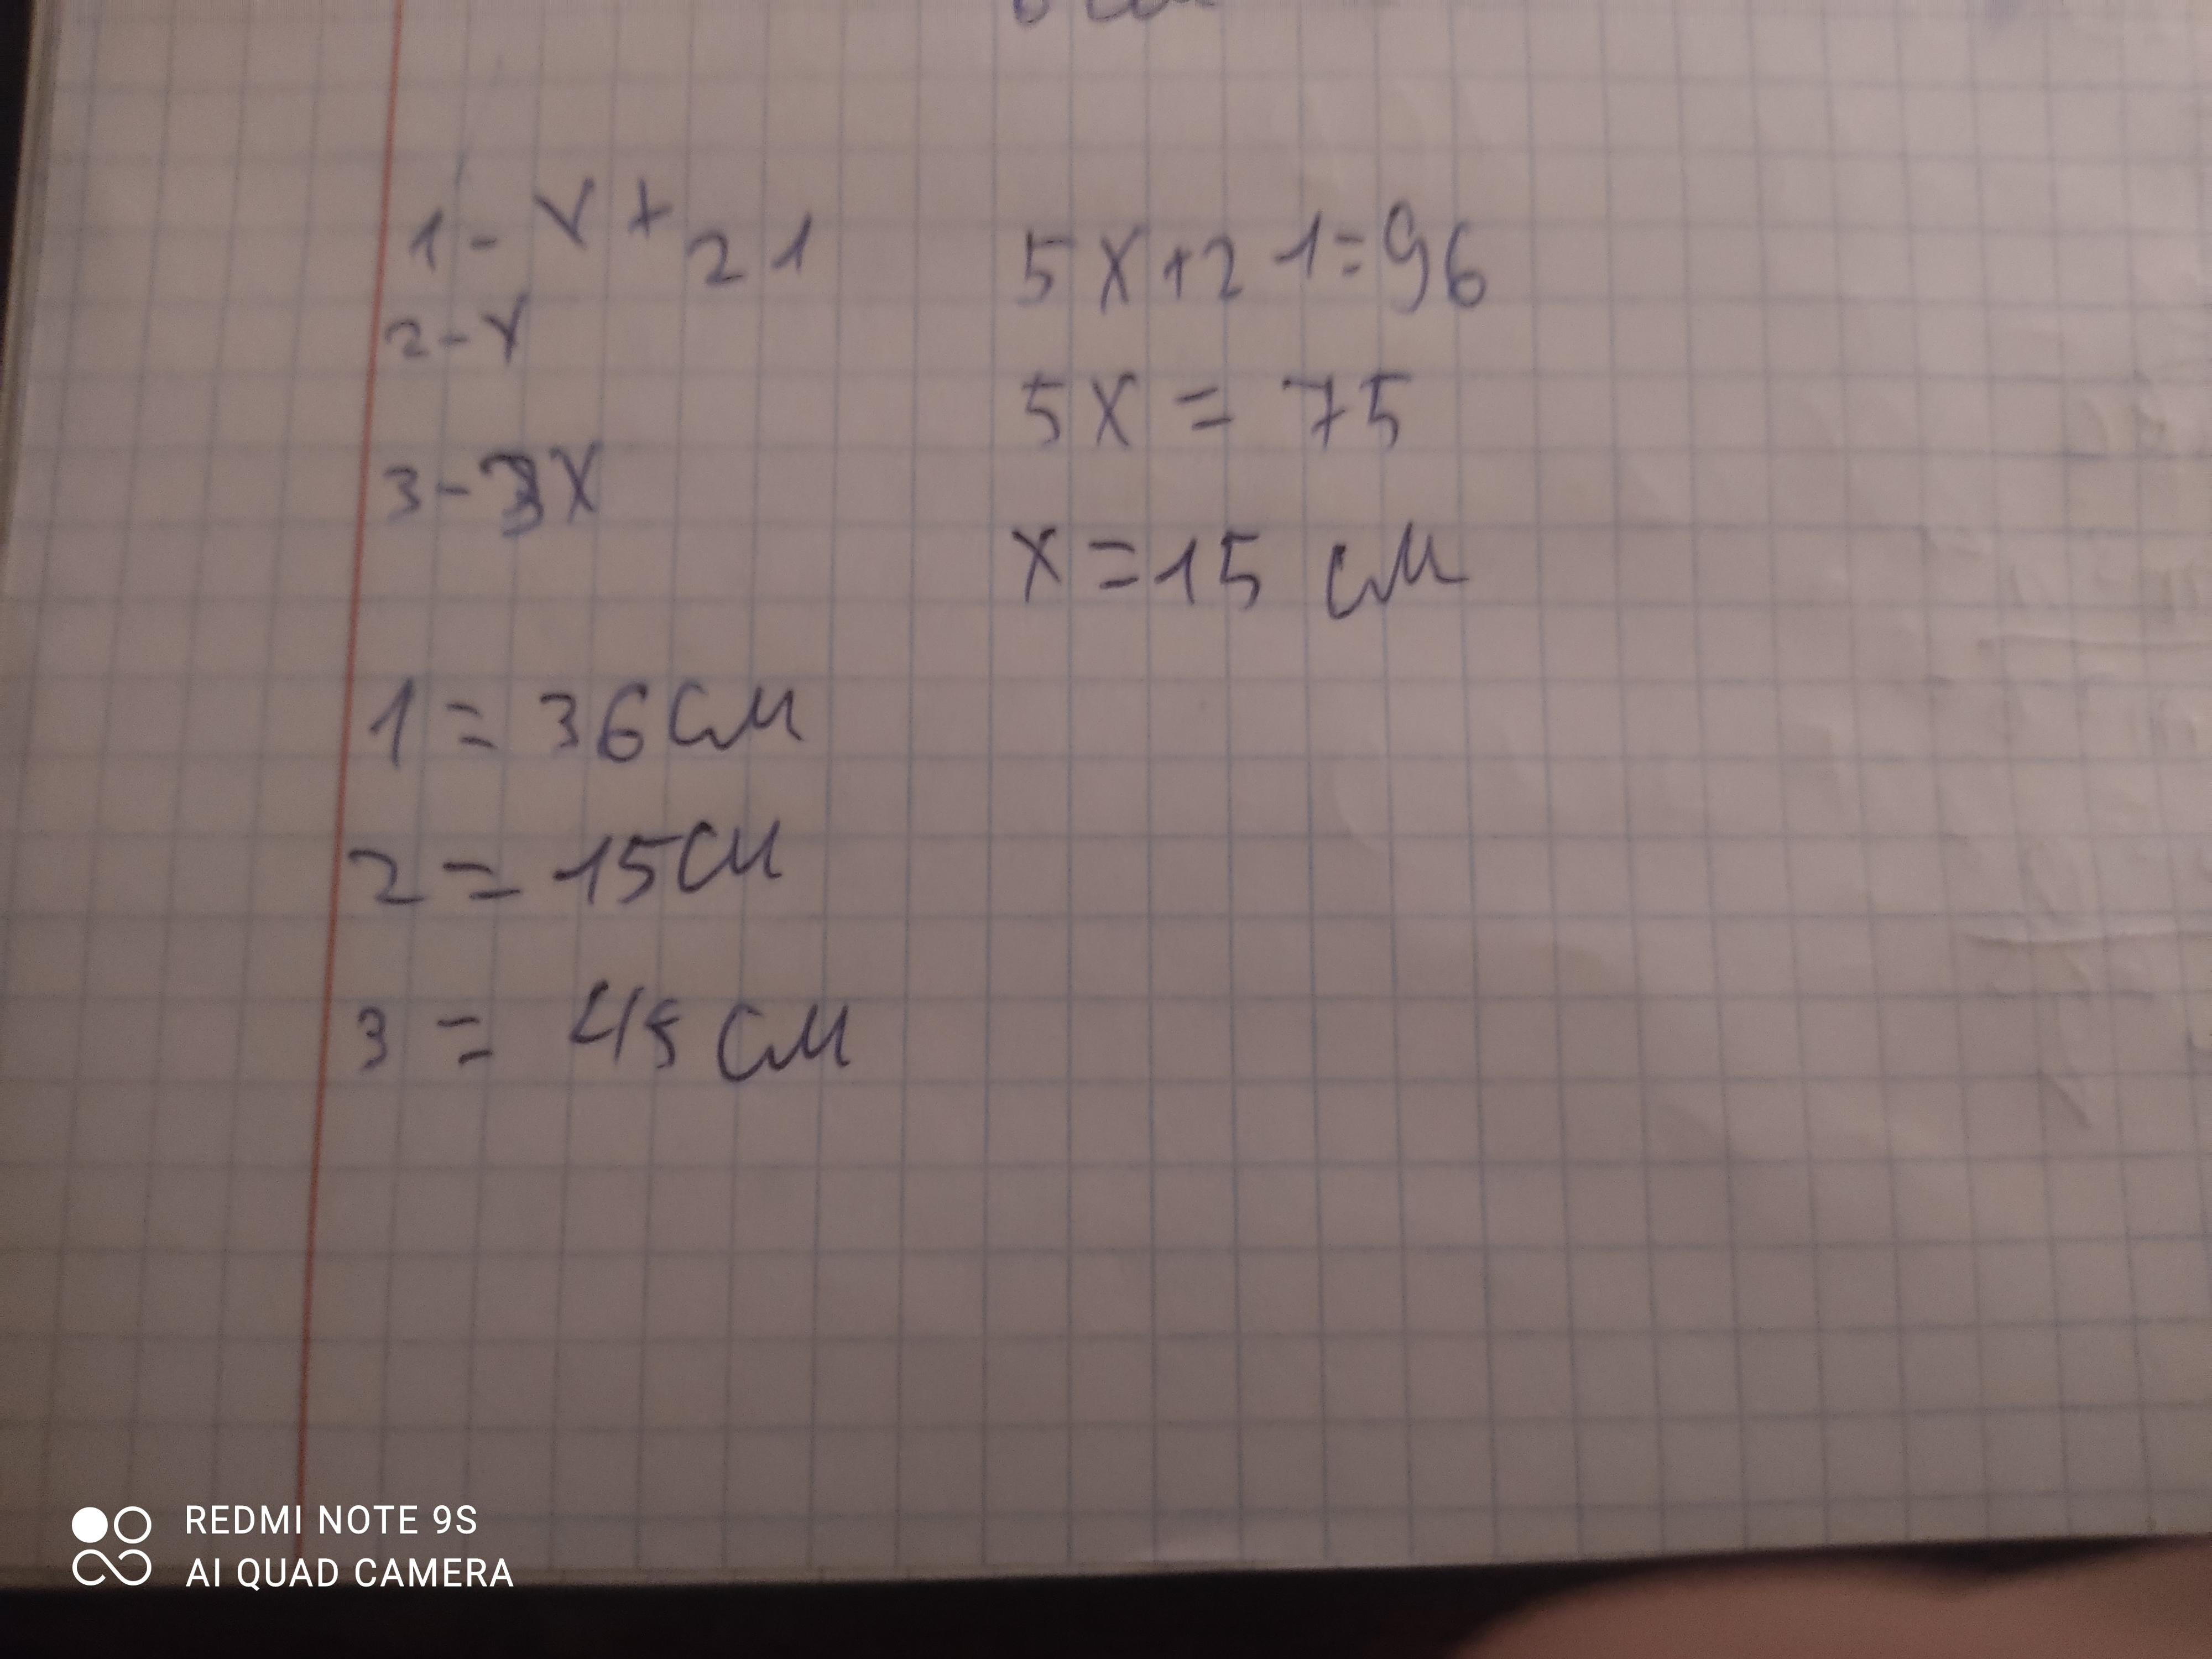 1 - x + 21
2 - x
3 - 3x
5x + 21 = 96
5x = 75
x = 15 см
1 = 36 см
2 = 15 см
3 = 45 см
REDMI NOTE 9S
AI QUAD CAMERA